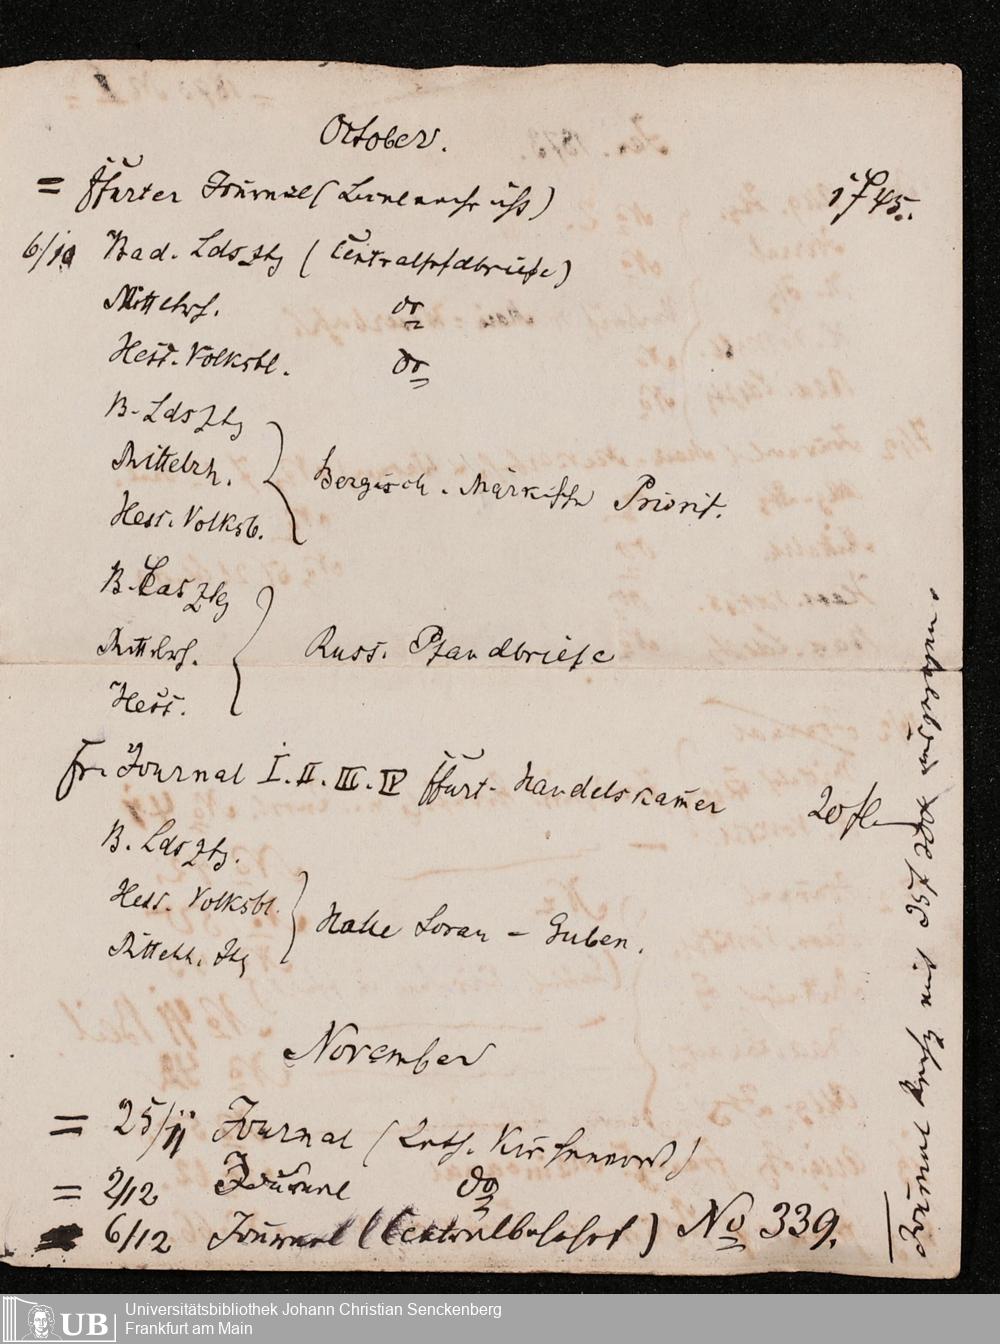 October.
= Ffurter Journal ( 1 f 45.
6/10 Bad. Lds Ztg ( Centralpfdbriefe)
Mittelrh. do
Hess. Volksbl. do
B. Lds Ztg
Mittelrh.
Hess. Volksb.
Bergisch. Märkische Priorit.
B. Lds Ztg
Mittelrh.
Hess.
Russ. Pfandbriefe
Fr. Journal I. II. III. IV Ffurt. Handelskamer 20 fl.
B. Lds Ztg.
Hess. Volksbl.
Mittelrh. Ztg
Halle Sorau - Guben.
November
= 25/11 Journal (Luth.
= 2/12 Journal do
6/12 Journal (Centralbahnhof) No 339.
Journal
Universitätsbibliothek Johann Christian Senckenberg
Frankfurt am Main
UB